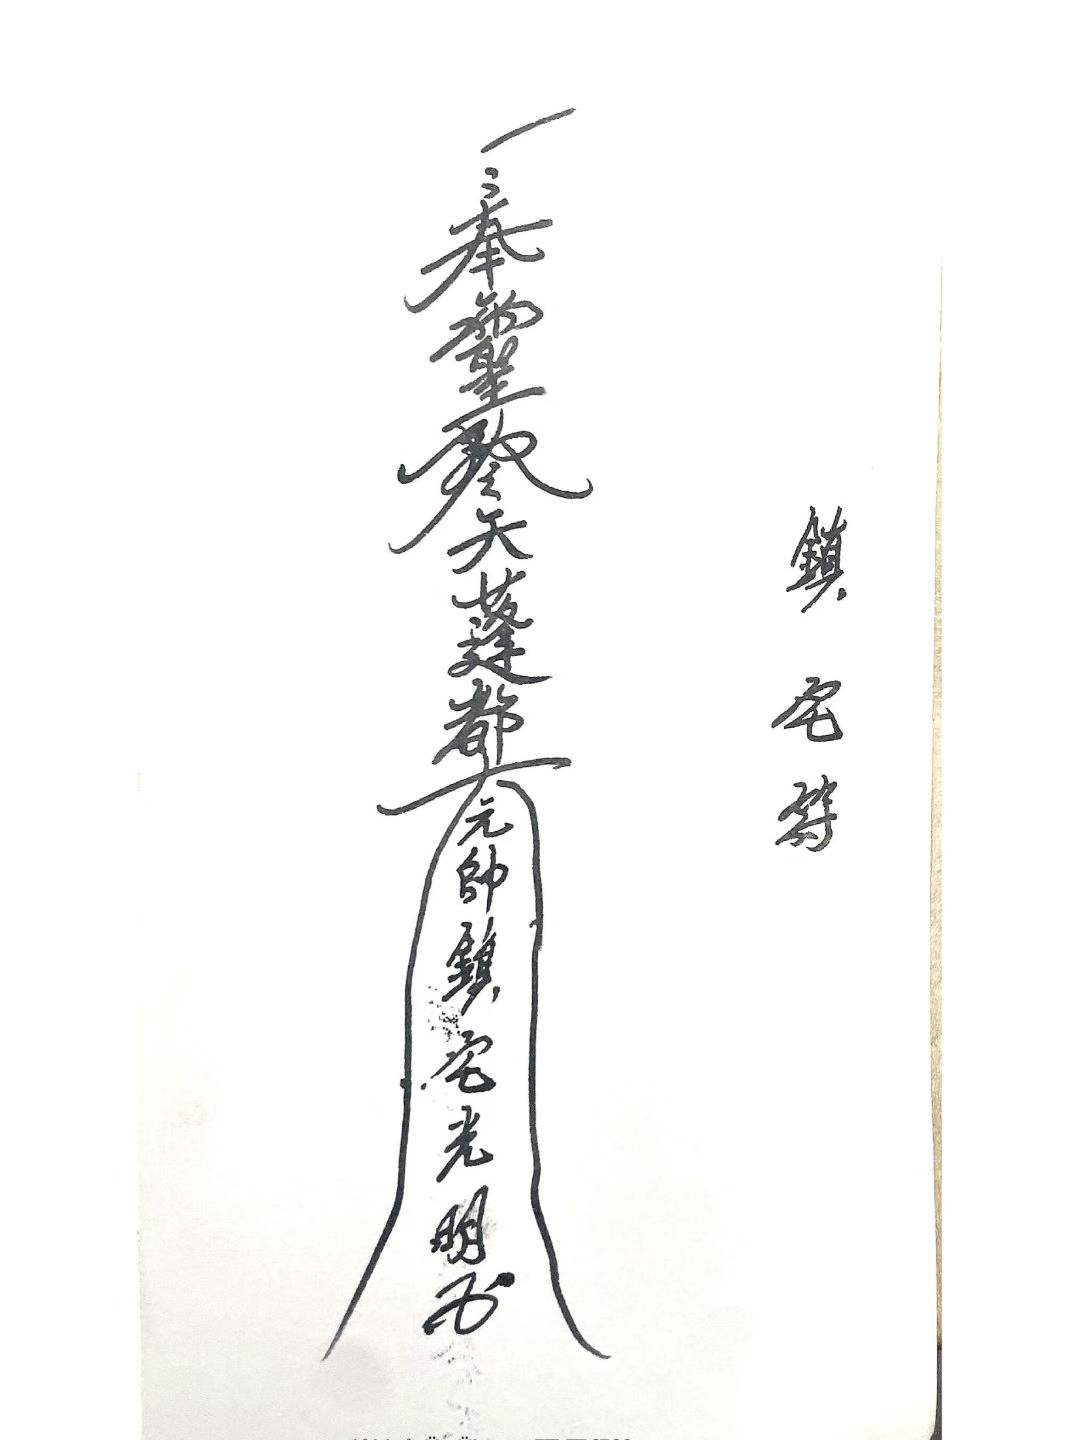 鎮宅符
奉聖天蓬都元帥鎮宅光明